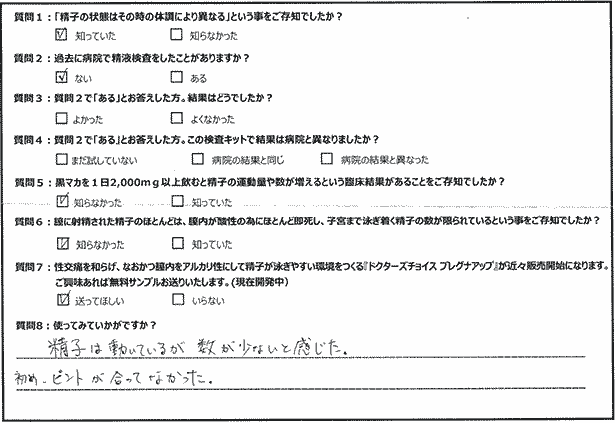 質問1:「精子の状態はその時の体調により異なる」という事をご存知でしたか?
☑ 知っていた □ 知らなかった
質問2:過去に病院で精液検査をしたことがありますか?
☑ ない □ ある
質問3:質問2で「ある」とお答えした方。結果はどうでしたか?
□ よかった □ よくなかった
質問4:質問2で「ある」とお答えした方。この検査キットで結果は病院と異なりましたか?
□ まだ試していない □ 病院の結果と同じ □ 病院の結果と異なった
質問5:黒マカを1日2,000mg以上飲むと精子の運動量や数が増えるという臨床結果があることをご存知でしたか?
☑ 知らなかった □ 知っていた
質問6:膣に射精された精子のほとんどは、膣内が酸性の為にほとんど即死し、子宮まで泳ぎ着く精子の数が限られているという事をご存知でしたか?
☑ 知らなかった □ 知っていた
質問7:性交痛を和らげ、なおかつ膣内をアルカリ性にして精子が泳ぎやすい環境をつくる『ドクターズチョイス プレグナアップ』が近々販売開始になります。
ご興味あれば無料サンプルお送りいたします。(現在開発中)
☑ 送ってほしい □ いらない
質問8:使ってみていかがですか?
精子は動いているが 数が少ないと感じた。
初め、ピントが合ってなかった。